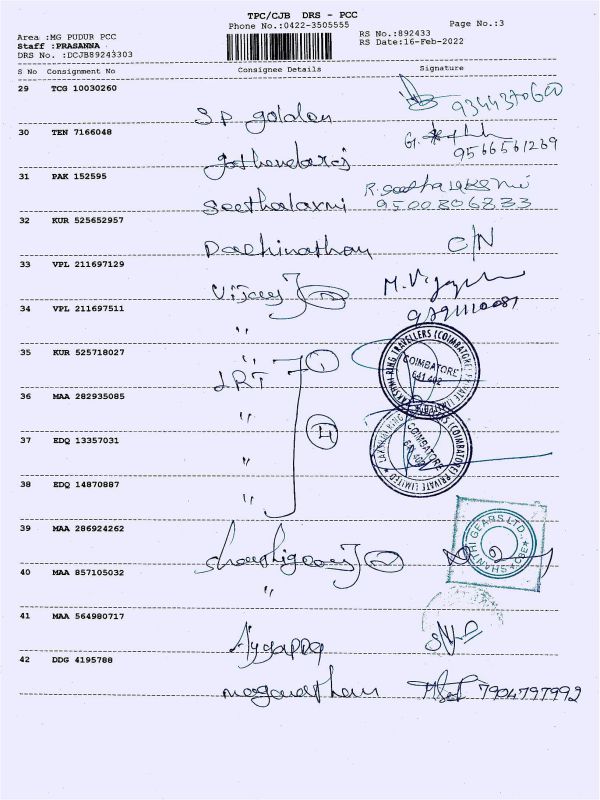 TPC/CJB DRS - PCC
Phone No.:0422-3505555
Page No.:3
Area :MG PUDUR PCC
Staff :PRASANNA
DRS No. :DCJB89243303
RS No.:892433
RS Date:16-Feb-2022
S No Consignment No Consignee Details Signature
29 TCG 10030260
S.P. golden 9344370600
30 TEN 7166048
9566561269
31 PAK 152595
Seethalaxmi R. Seethalakshmi
9500306833
32 KUR 525652957
C/N
33 VPL 211697129
Vijay 2 M. Vijay
34 VPL 211697511
"
35 KUR 525718027
" 1
LRT
LAKSHMI RING TRAVELLERS (COIMBATORE) PRIVATE LIMITED
COIMBATORE
641 402
36 MAA 282935085
"
37 EDQ 13357031
" 4
LAKSHMI RING TRAVELLERS (COIMBATORE) PRIVATE LIMITED
COIMBATORE
38 EDQ 14870887
"
39 MAA 286924262
2
SHANTHI GEARS LTD., CBE
40 MAA 857105032
"
41 MAA 564980717
Ayyappa
42 DDG 4195788
7904797992